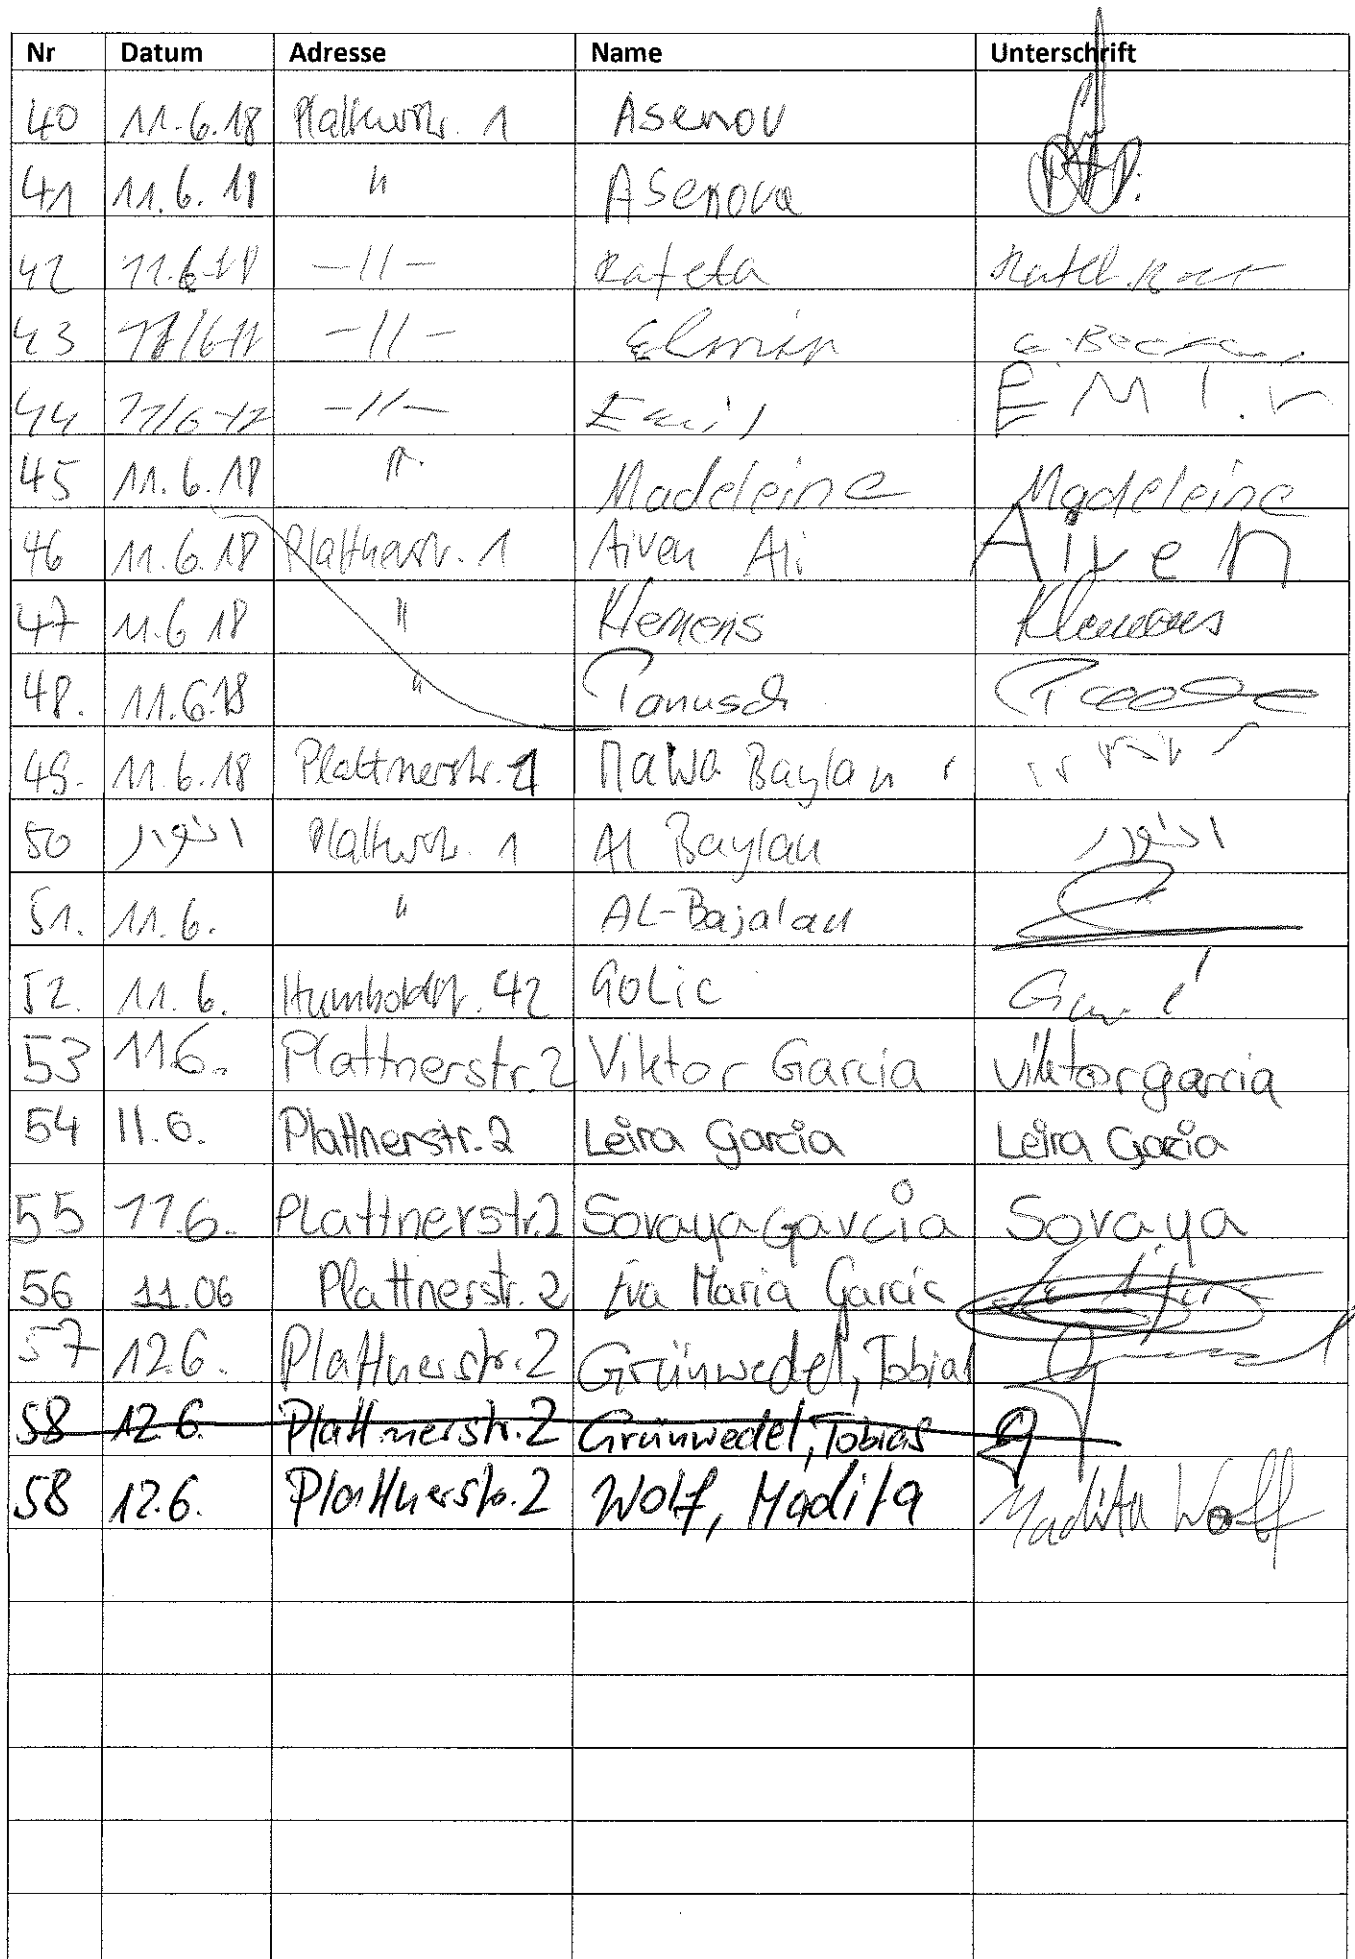 Nr Datum Adresse Name Unterschrift
40 11.6.18 Plattnerstr. 1 Asenov
41 11.6.18 " Asenova
42 11.6.18 -//- Rafeta
43 -//- Elmin
44 -//- Emil E M I. r
45 11.6.18 ". Madeleine Madeleine
46 11.6.18 Plattnerstr. 1 Aiven Ali Aiven
47 11.6 18 " Klemens Klemens
48. 11.6.18 " Panusch
49. 11.6.18 Plattnerstr. 1 Baylan
50 Plattnerstr. 1 Al Baylan
51. 11.6. " AL-Bajalan
52. 11.6. Humboldtstr. 42 Golic
53 11.6. Plattnerstr. 2 Viktor Garcia Viktor garcia
54 11.6. Plattnerstr. 2 Leira Garcia Leira Garcia
55 11.6. Plattnerstr. 2 Soraya Garcia Soraya
56 11.06 Plattnerstr. 2 Eva Maria Garcia
57 12.6. Plattnerstr. 2 Grünwedel, Tobias
58 12.6. Plattnerstr. 2 Grünwedel, Tobias
58 12.6. Plattnerstr. 2 Wolf, Madita Madita Wolff